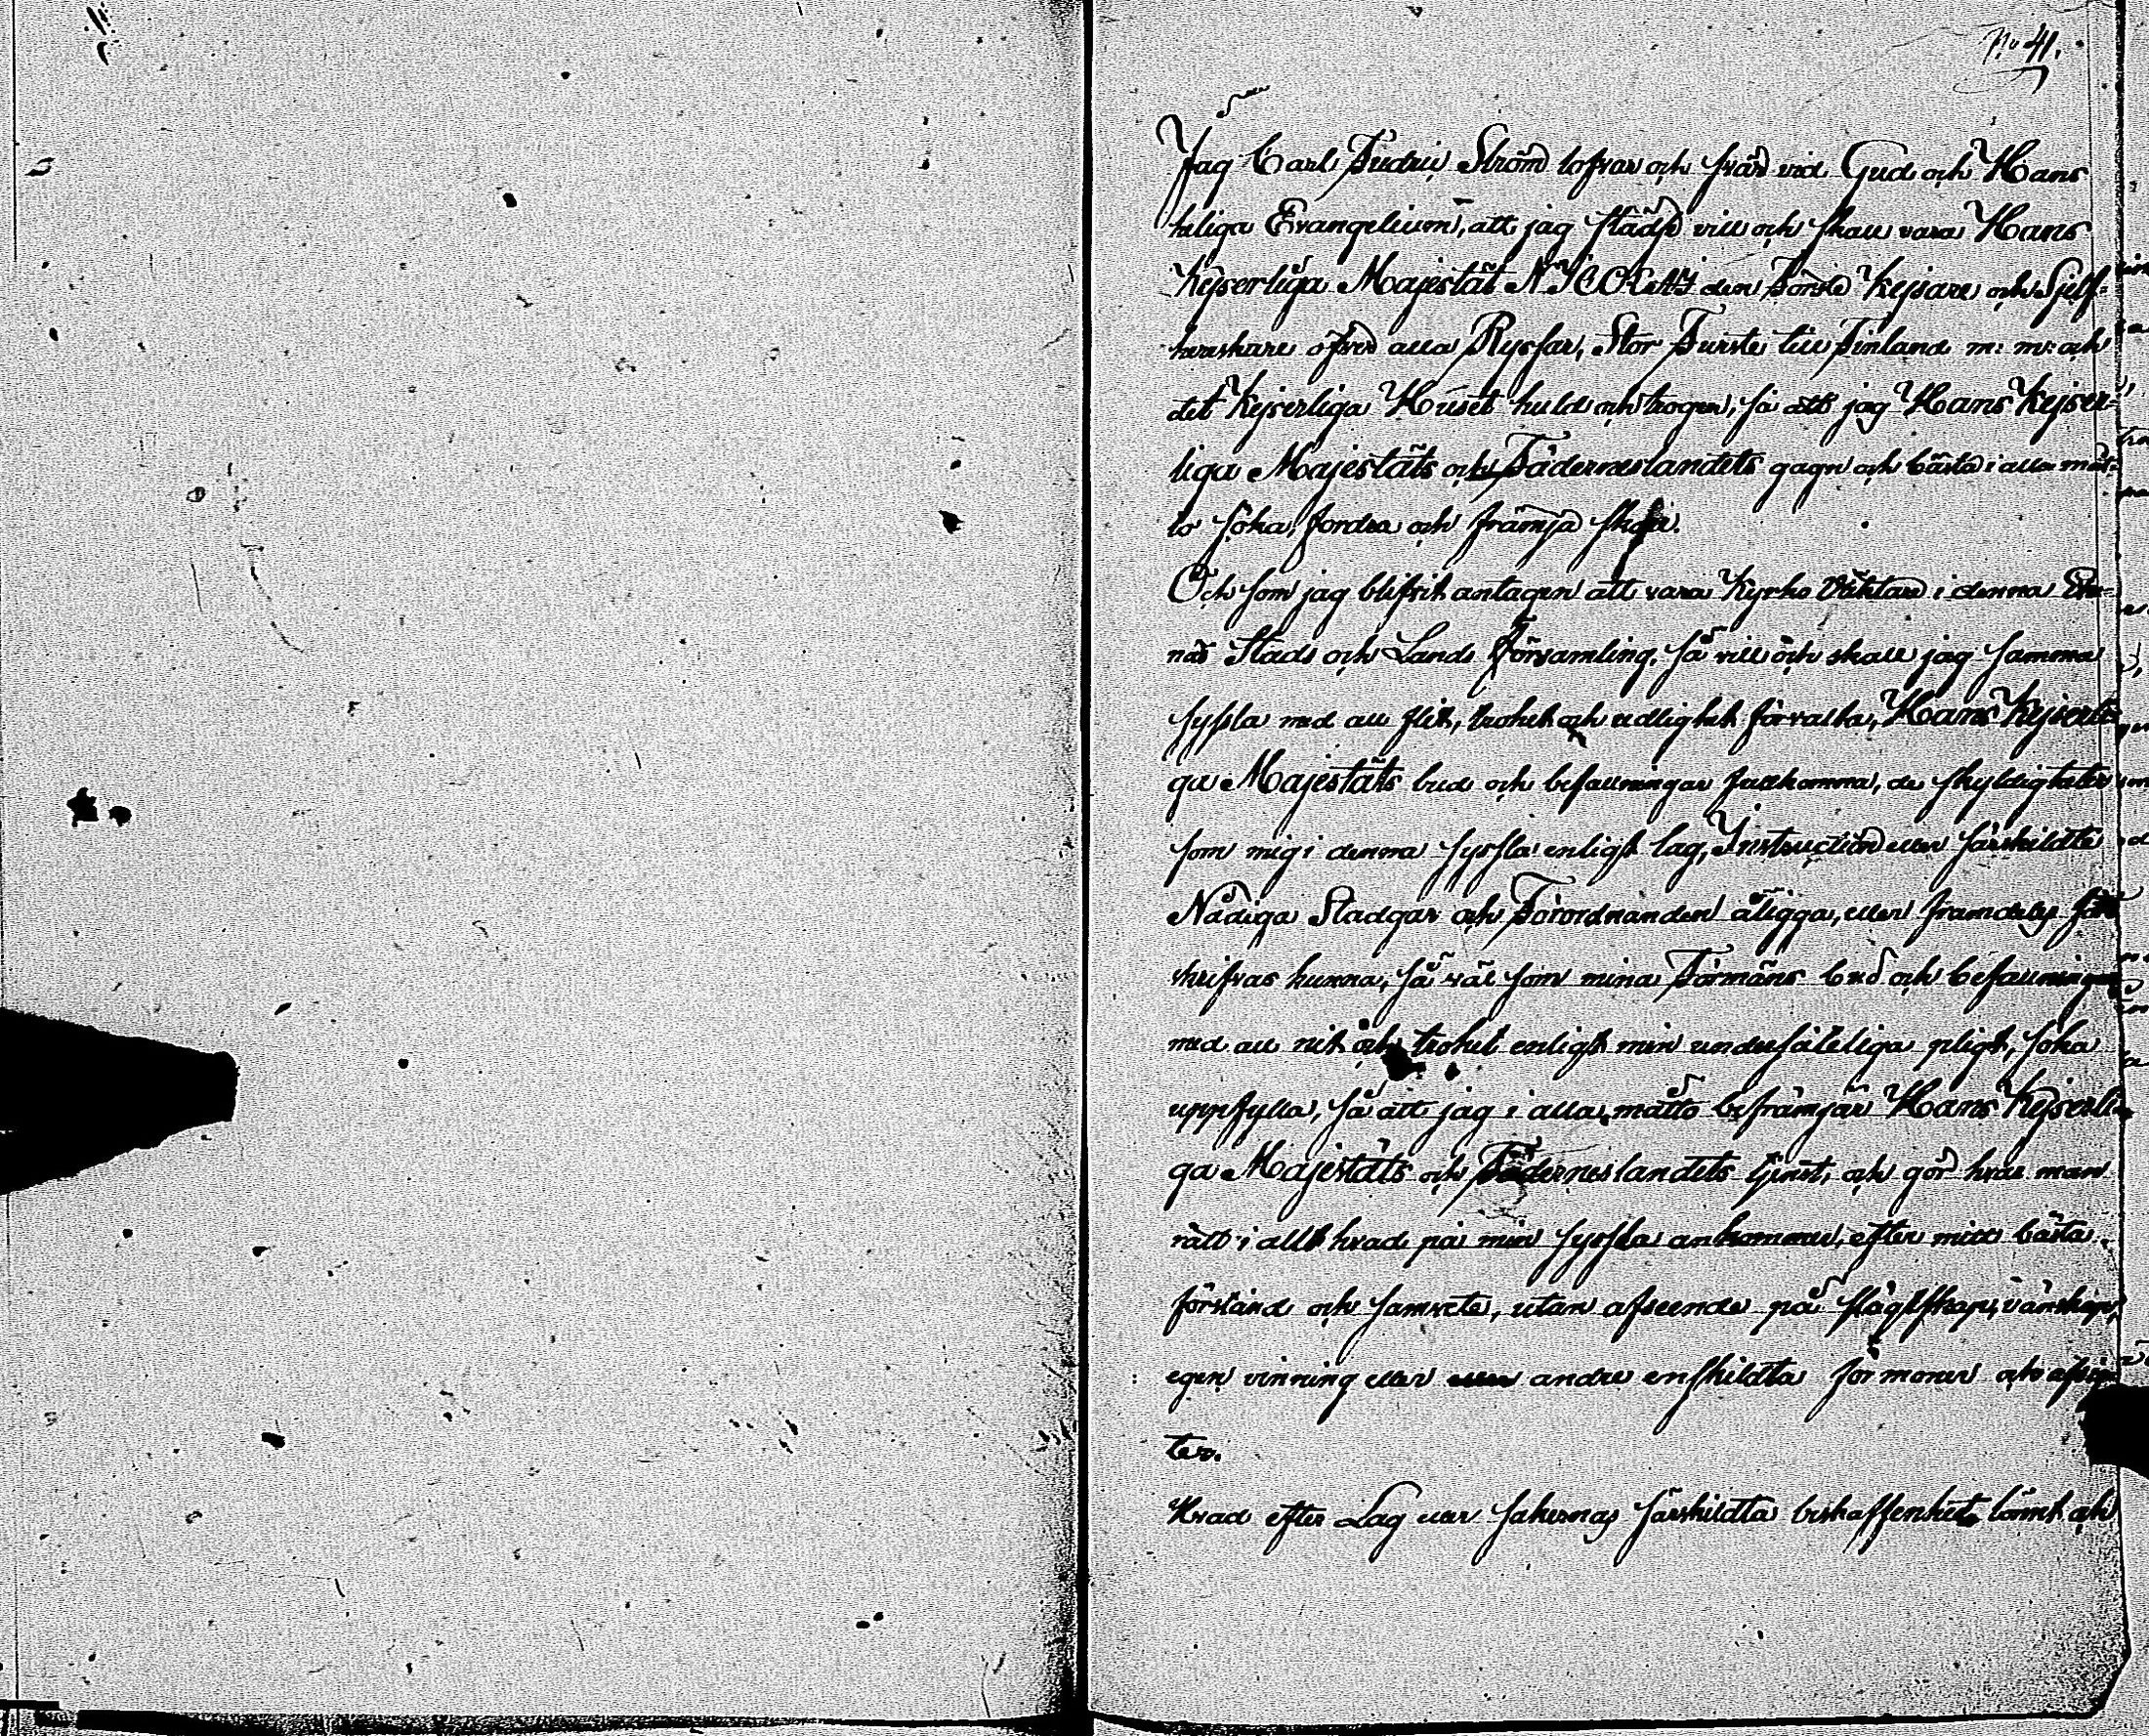 No 41.
Jag Carl Fredric Ström lofvar och svär vid Gud och Hans
heliga Evangelium, att jag städse vill och skall vara Hans
Kejserliga Majestät NICOLAJ den Förste Kejsare och Sjelf-
herrskare öfver alla Ryssar, Stor Furste till Finland m: m: och
det Kejserliga Huset huld och trogen, så att jag Hans Kejser-
liga Majestäts och Fäderneslandets gagn och bästa i alla måt-
to söka, fordra och främja skall.
Och som jag blifvit antagen att vara Kyrko Väktare i denna Eke-
näs Stads och Lands Församling, så vill och skall jag samma
syssla med all flit, trohet och redlighet förvalta, Hans Kejserli-
ga Majestäts bud och befallningar fullkomna, de skyldigheter
som mig i denna syssla enligt lag, Instruction eller särskildte
Nådiga Stadgar och Förordnanden åligga, eller framdeles före
skrifvas kunna, så väl som mina Förmäns bud och befallningar
med all nit och trohet enligt min undersåteliga pligt, söka
uppfylla, så att jag i alla måtto befrämjar Hans Kejserli-
ga Majestäts och Fäderneslandets tjenst, och gör hvar man
rätt i allt hvad på min syssla ankommer, efter mitt bästa
förstånd och samvete, utan afseende på slägtskap, vänskap,
egen vinning eller andre enskildta förmoner och afsig-
ter.
Hvad efter Lag eller sakernas särskildta beskaffenhet lömt och